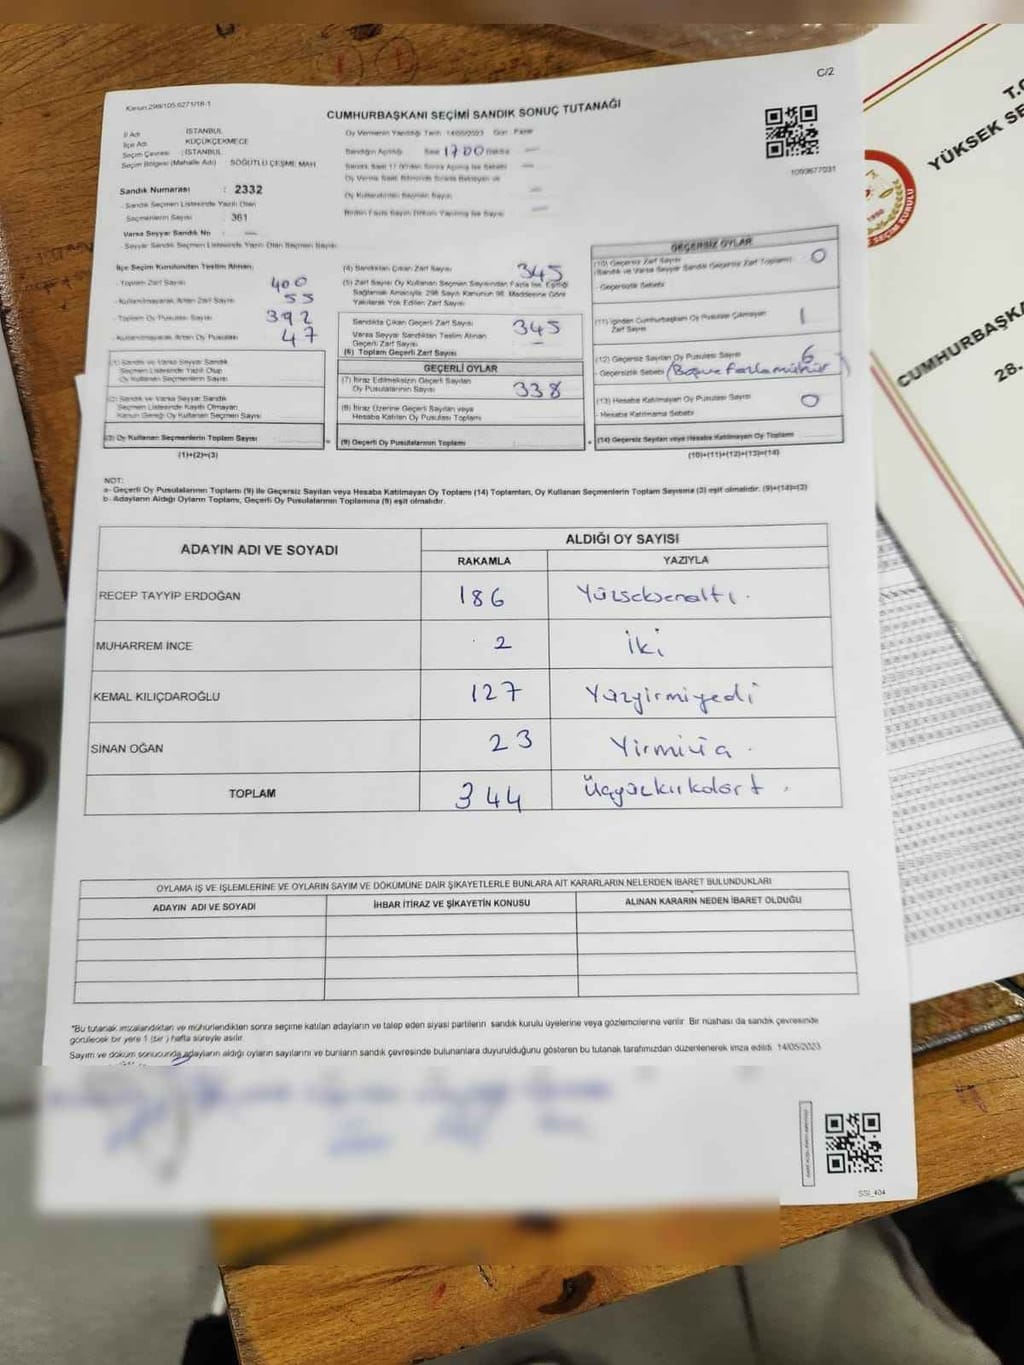 C/2
Kanun 298/105.6271/18-1
CUMHURBAŞKANI SEÇİMİ SANDIK SONUÇ TUTANAĞI
İl Adı İSTANBUL
İlçe Adı KÜÇÜKÇEKMECE
Seçim Çevresi : İSTANBUL
Seçim Bölgesi (Mahalle Adı) SÖĞÜTLÜ ÇEŞME MAH.
Oy Vermenin Yapıldığı Tarih 14/05/2023 Gün Pazar
Sandığın Açıldığı Saat 1700
1093677031
Sandık Numarası : 2332
- Sandık Seçmen Listesinde Yazılı Olan
Seçmenlerin Sayısı : 361
Varsa Seyyar Sandık No
- Seyyar Sandık Seçmen Listesinde Yazılı Olan Seçmen Sayısı
İlçe Seçim Kurulundan Teslim Alınan;
- Toplam Zarf Sayısı 400
- Kullanılmayarak Artan Zarf Sayısı 55
- Toplam Oy Pusulası Sayısı 392
- Kullanılmayarak Artan Oy Pusulası 47
(1) Sandık ve Varsa Seyyar Sandık
Seçmen Listesinde Yazılı Olup
Oy Kullanan Seçmenlerin Sayısı
(2) Sandık ve Varsa Seyyar Sandık
Seçmen Listesinde Kayıtlı Olmayan
Kanun Gereği Oy Kullanan Seçmen Sayısı
(3) Oy Kullanan Seçmenlerin Toplam Sayısı
(1)+(2)=(3)
(4) Sandıktan Çıkan Zarf Sayısı 345
(5) Zarf Sayısı Oy Kullanan Seçmen Sayısından Fazla İse, Eşitliği
Sağlamak Amacıyla, 298 Sayılı Kanunun 98. Maddesine Göre
Yakılarak Yok Edilen Zarf Sayısı
Sandıkta Çıkan Geçerli Zarf Sayısı 345
Varsa Seyyar Sandıktan Teslim Alınan
Geçerli Zarf Sayısı
(6) Toplam Geçerli Zarf Sayısı
GEÇERLİ OYLAR
(7) İtiraz Edilmeksizin Geçerli Sayılan
Oy Pusulalarının Sayısı 338
(8) İtiraz Üzerine Geçerli Sayılan veya
Hesaba Katılan Oy Pusulası Toplamı
(9) Geçerli Oy Pusulalarının Toplamı
GEÇERSİZ OYLAR
(10) Geçersiz Zarf Sayısı 0
(Sandık ve Varsa Seyyar Sandık Geçersiz Zarf Toplamı)
- Geçersizlik Sebebi
(11) İçinden Cumhurbaşkanı Oy Pusulası Çıkmayan
Zarf Sayısı 1
(12) Geçersiz Sayılan Oy Pusulası Sayısı 6
- Geçersizlik Sebebi
(13) Hesaba Katılmayan Oy Pusulası Sayısı 0
- Hesaba Katılmama Sebebi
(14) Geçersiz Sayılan veya Hesaba Katılmayan Oy Toplamı
(10)+(11)+(12)+(13)=(14)
NOT:
a- Geçerli Oy Pusulalarının Toplamı (9) ile Geçersiz Sayılan veya Hesaba Katılmayan Oy Toplamı (14) Toplamları, Oy Kullanan Seçmenlerin Toplam Sayısına (3) eşit olmalıdır. (9)+(14)=(3)
b- Adayların Aldığı Oyların Toplamı, Geçerli Oy Pusulalarının Toplamına (9) eşit olmalıdır.
ADAYIN ADI VE SOYADI
ALDIĞI OY SAYISI
RAKAMLA YAZIYLA
RECEP TAYYİP ERDOĞAN 186 Yüzseksenaltı.
MUHARREM İNCE 2 İki
KEMAL KILIÇDAROĞLU 127 Yüzyirmiyedi
SİNAN OĞAN 23 Yirmiüç.
TOPLAM 344 Üçyüzkırkdört.
OYLAMA İŞ VE İŞLEMLERİNE VE OYLARIN SAYIM VE DÖKÜMÜNE DAİR ŞİKAYETLERLE BUNLARA AİT KARARLARIN NELERDEN İBARET BULUNDUKLARI
ADAYIN ADI VE SOYADI İHBAR İTİRAZ VE ŞİKAYETİN KONUSU ALINAN KARARIN NEDEN İBARET OLDUĞU
*Bu tutanak imzalandıktan ve mühürlendikten sonra seçime katılan adayların ve talep eden siyasi partilerin sandık kurulu üyelerine veya gözlemcilerine verilir. Bir nüshası da sandık çevresinde
görülecek bir yere 1 (bir) hafta süreyle asılır.
Sayım ve döküm sonucunda adayların aldığı oyların sayılarını ve bunların sandık çevresinde bulunanlara duyurulduğunu gösteren bu tutanak tarafımızdan düzenlenerek imza edildi. 14/05/2023
SSI_404
T.C
YÜKSEK SE
CUMHURBAŞKA
28.